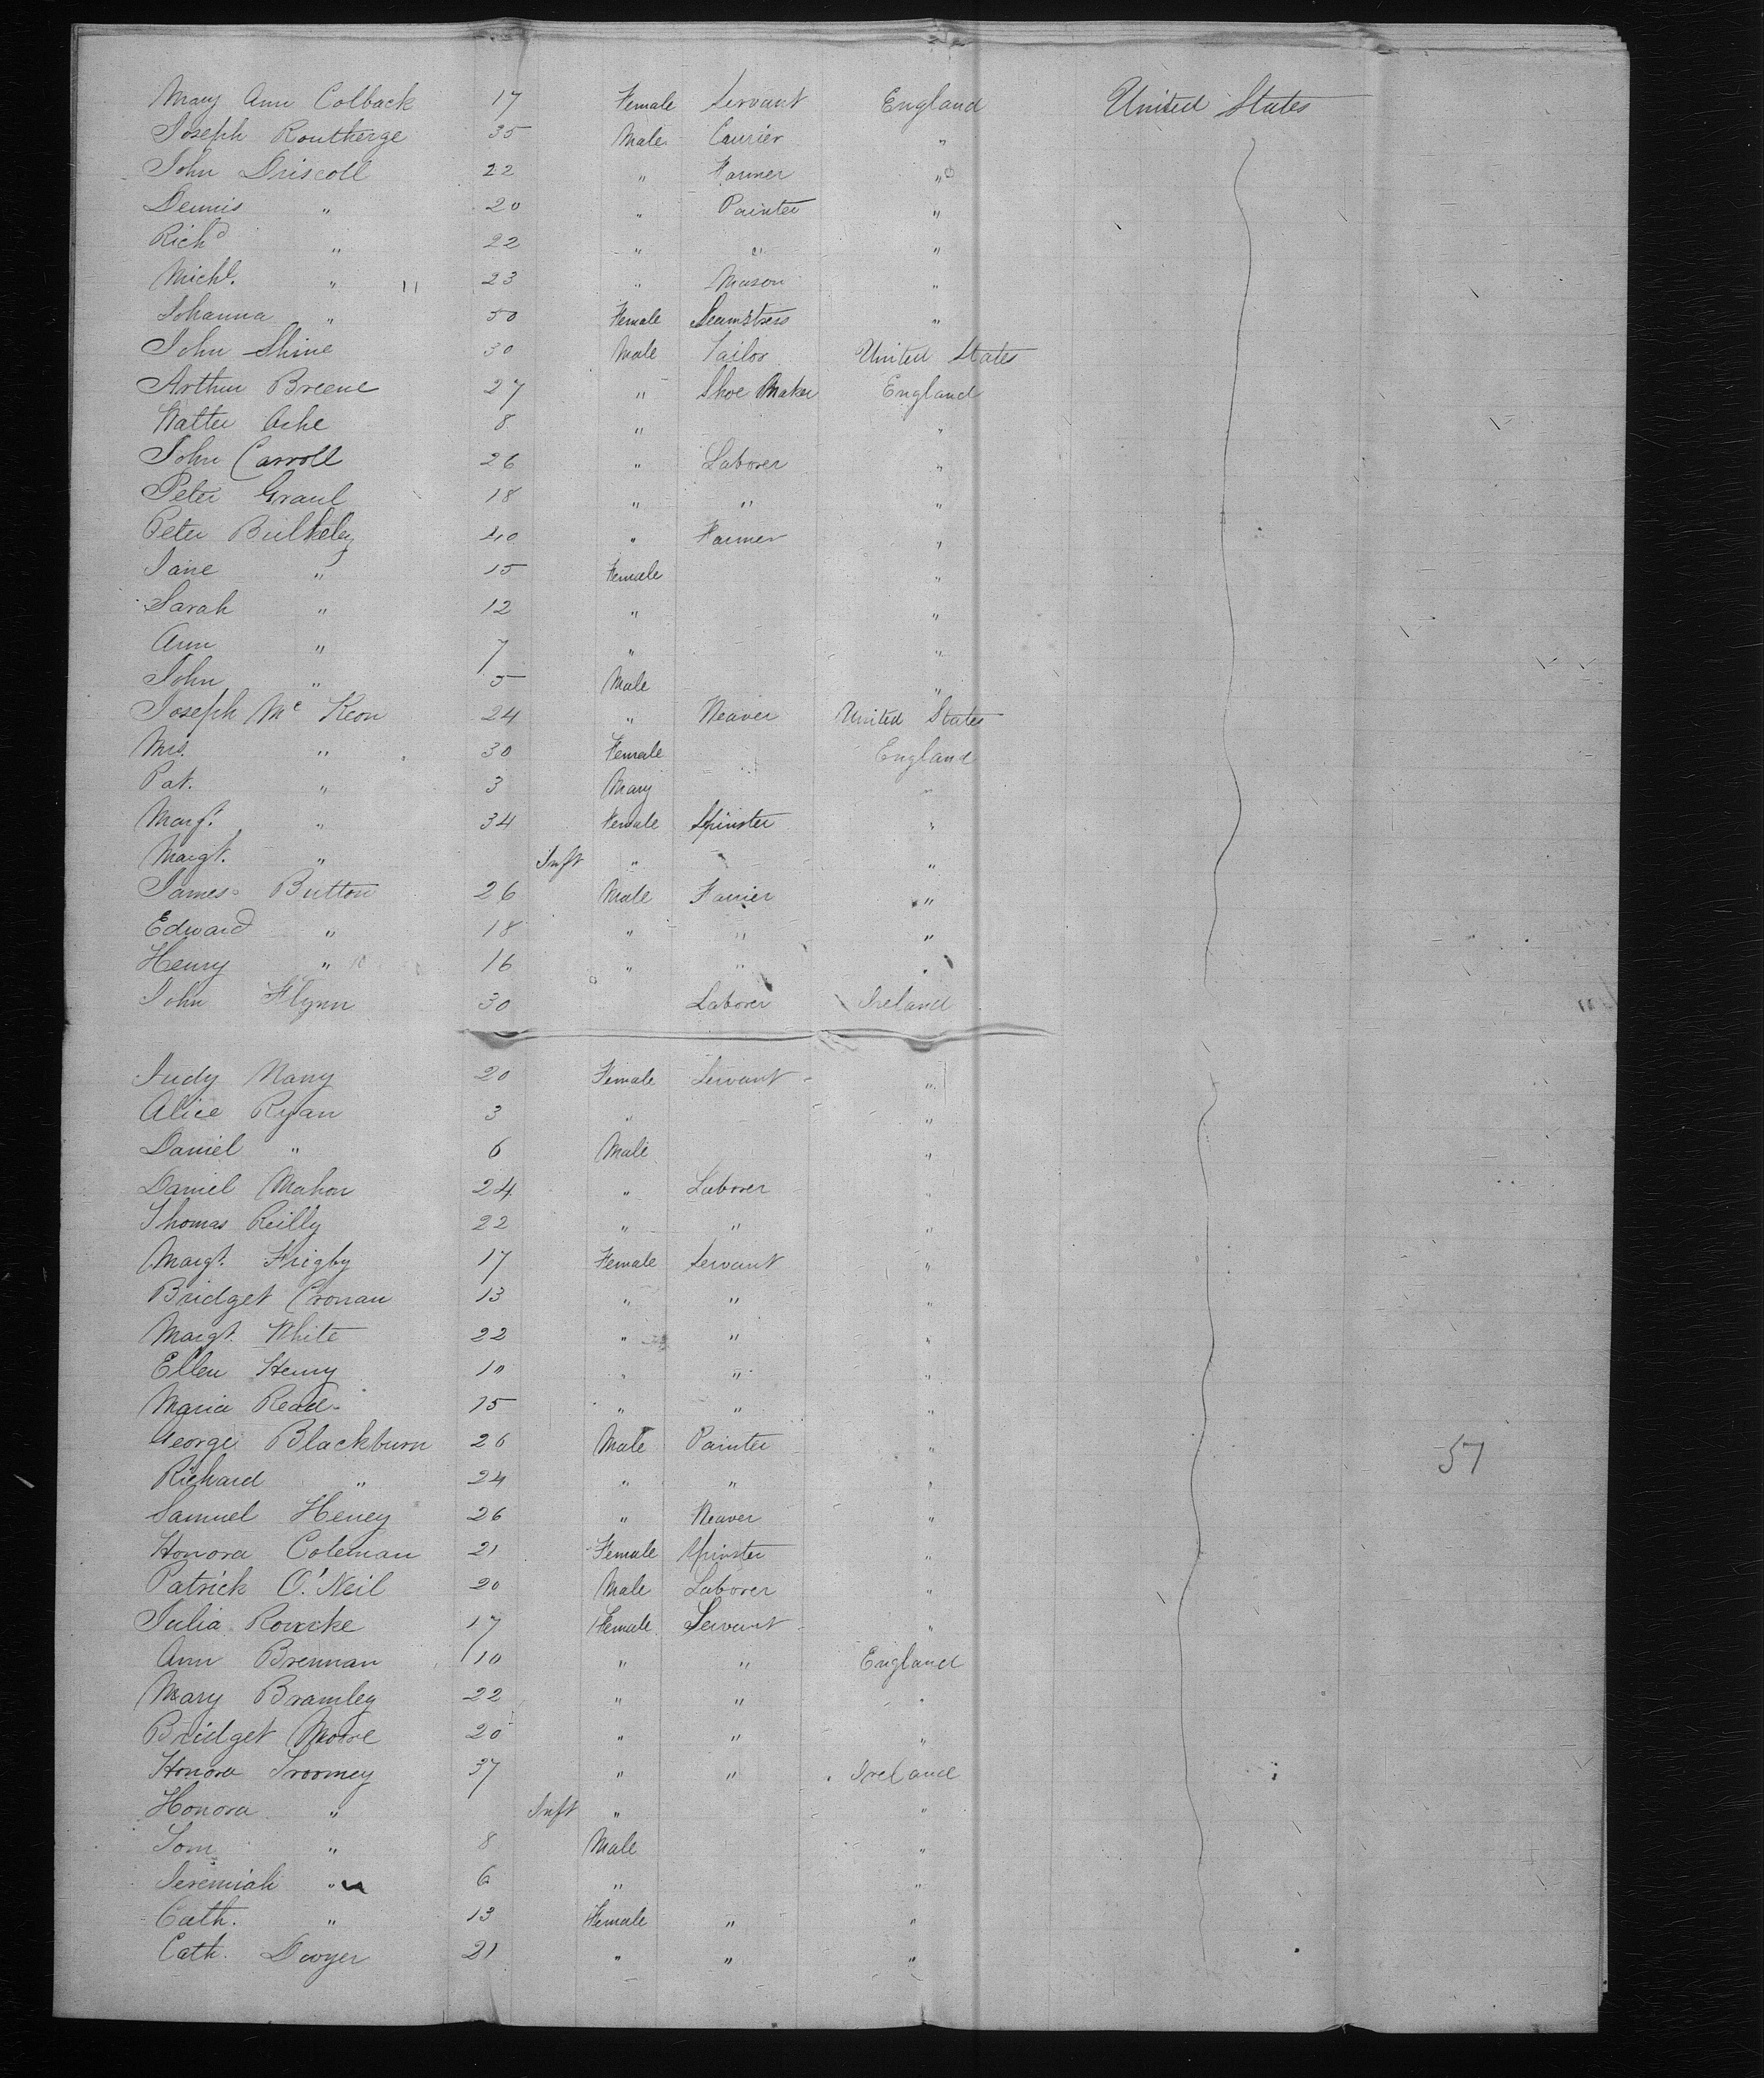 Mary Ann Colback 17 Female Servant England United States
Joseph Routherge 35 Male Currier "
John Driscoll 22 " Farmer "
Dennis " 20 " Painter "
Richd " 22 " " "
Michl. " 23 " Mason "
Johanna " 50 Female Seamstress "
John Shine 30 Male Tailor United States
Arthur Breene 27 " Shoe Maker England
Walter Ashe 8 " "
John Carroll 26 " Laborer "
Peter Graul 18 " " "
Peter Bulkeley 40 " Farmer "
Jane " 15 Female "
Sarah " 12 " "
Ann " 7 " "
John " 5 Male "
Joseph Mc Keon 24 " Weaver United States
Mrs. " 30 Female England
Pat. " 3 Mary "
Margt. " 34 Female Spinster "
Margt. " Inft " "
James Button 26 Male Farrier "
Edward " 18 " " "
Henry " 16 " " "
John Flynn 30 Laborer Ireland
Judy Nany 20 Female Servant "
Alice Ryan 3 " "
Daniel " 6 Male "
Daniel Mahon 24 " Laborer "
Thomas Reilly 22 " " "
Margt. Frigby 17 Female Servant "
Bridget Cronan 13 " " "
Margt. White 22 " " "
Ellen Henry 10 " " "
Maria Read 15 " " "
George Blackburn 26 Male Painter "
57
Richard " 24 " " "
Samuel Heney 26 " Weaver "
Honora Coleman 21 Female Spinster "
Patrick O'Neil 20 Male Laborer "
Julia Rourke 17 Female Servant "
Ann Brennan 10 " " England
Mary Bramley 22 " " "
Bridget Moore 20 " " "
Honora Troomey 37 " " Ireland
Honora " Inft " "
Tom " 8 Male "
Jeremiah " 6 " "
Cath. " 13 Female " "
Cath. Dwyer 21 " " "